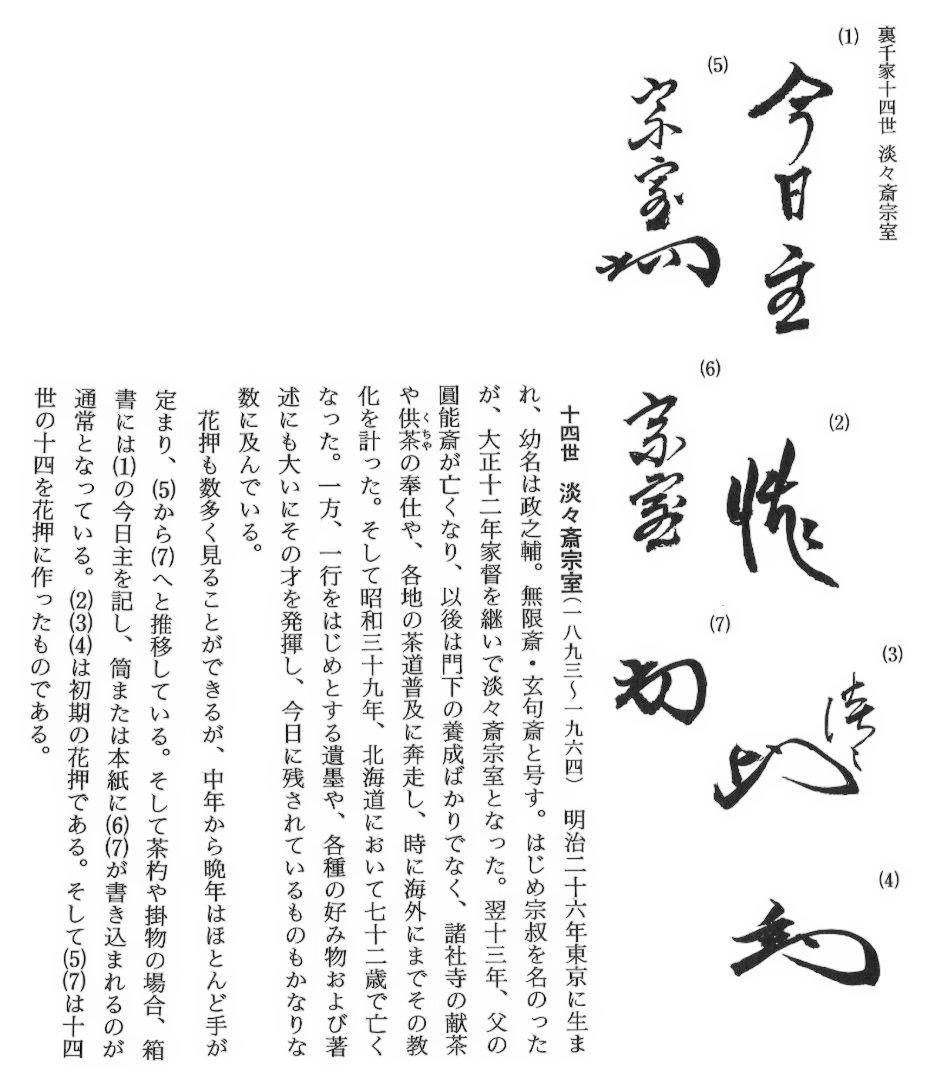 裏千家十四世 淡々斎宗室
(1)
今日主
(2)
(3)
淡々
(4)
(5)
宗室
(6)
宗室
(7)
十四世　淡々斎宗室（一八九三〜一九六四）　明治二十六年東京に生ま
れ、幼名は政之輔。無限斎・玄句斎と号す。はじめ宗叔を名のった
が、大正十二年家督を継いで淡々斎宗室となった。翌十三年、父の
圓能斎が亡くなり、以後は門下の養成ばかりでなく、諸社寺の献茶
や供茶くちゃの奉仕や、各地の茶道普及に奔走し、時に海外にまでその教
化を計った。そして昭和三十九年、北海道において七十二歳で亡く
なった。一方、一行をはじめとする遺墨や、各種の好み物および著
述にも大いにその才を発揮し、今日に残されているものもかなりな
数に及んでいる。
花押も数多く見ることができるが、中年から晩年はほとんど手が
定まり、(5)から(7)へと推移している。そして茶杓や掛物の場合、箱
書には(1)の今日主を記し、筒または本紙に(6)(7)が書き込まれるのが
通常となっている。(2)(3)(4)は初期の花押である。そして(5)(7)は十四
世の十四を花押に作ったものである。